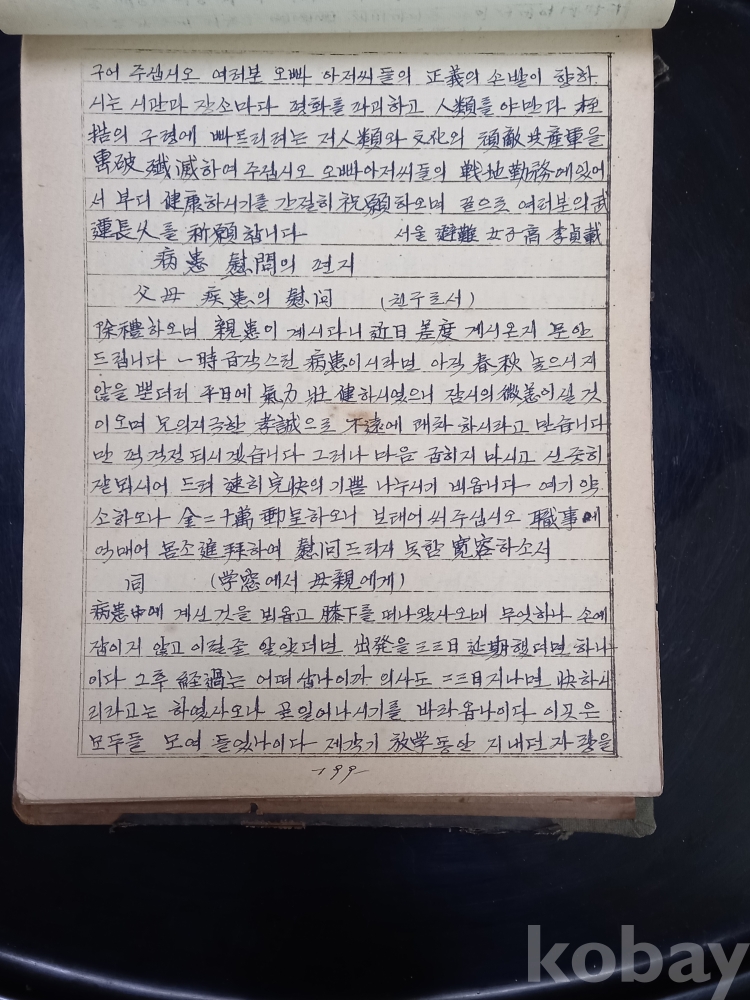 구어 주십시오 여러분 오빠 아저씨들의 正義의 손발이 향하
시는 시간과 장소마다 평화를 파괴하고 人類를 야만과 桎
梏의 구렁에 빠뜨리려는 저 人類와 文化의 頑敵 共産軍을
擊破 殲滅하여 주십시오 오빠아저씨들의 戰地勤務에있어
서 부디 健康하시기를 간절히 祝願하오며 끝으로 여러분의 武
運長久를 祈願합니다 서울 避難 女子高 李貞載
病患 慰問의 편지
父母 疾患의 慰问 (친구로서)
除禮하오며 親患이 계시다니 近日 差度 계시온지 문안
드립니다 一時 급작스런 病患이시라면 아직 春秋 높으시지
않을 뿐더러 平日에 氣力 壯健하시였으니 잠시의 微恙이실 것
이오며 兄의지극한 孝誠으로 不遠에 쾌차 하시리라고 믿습니다
만 적 걱정 되시겠습니다 그러나 마음 급히지 마시고 신중히
잘되시어 드려 速히 完快의 기쁨 나누시기 비옵니다 여기 약
소하오나 金二十萬 郵呈하오니 보태어 써 주십시오 職事에
억매여 몸소進拜하여 慰问드리지 못함 寬容하소서
同 (学窓에서 母親에게)
病患中에 계신것을 뵈옵고 膝下를 떠나왔사오매 무엇하나 손에
잡이지 않고 이럴줄 알았더면 出発을 二三日 延期했더면 하나
이다 그후 経過는 어떠삽나이까 의사도 二三日지나면 快하시
리라고는 하였사오나 곧일어나시기를 바라옵나이다 이곳은
모두들 모여 들었나이다 제각기 放学동안 지내던 자랑을
-199-
kobay